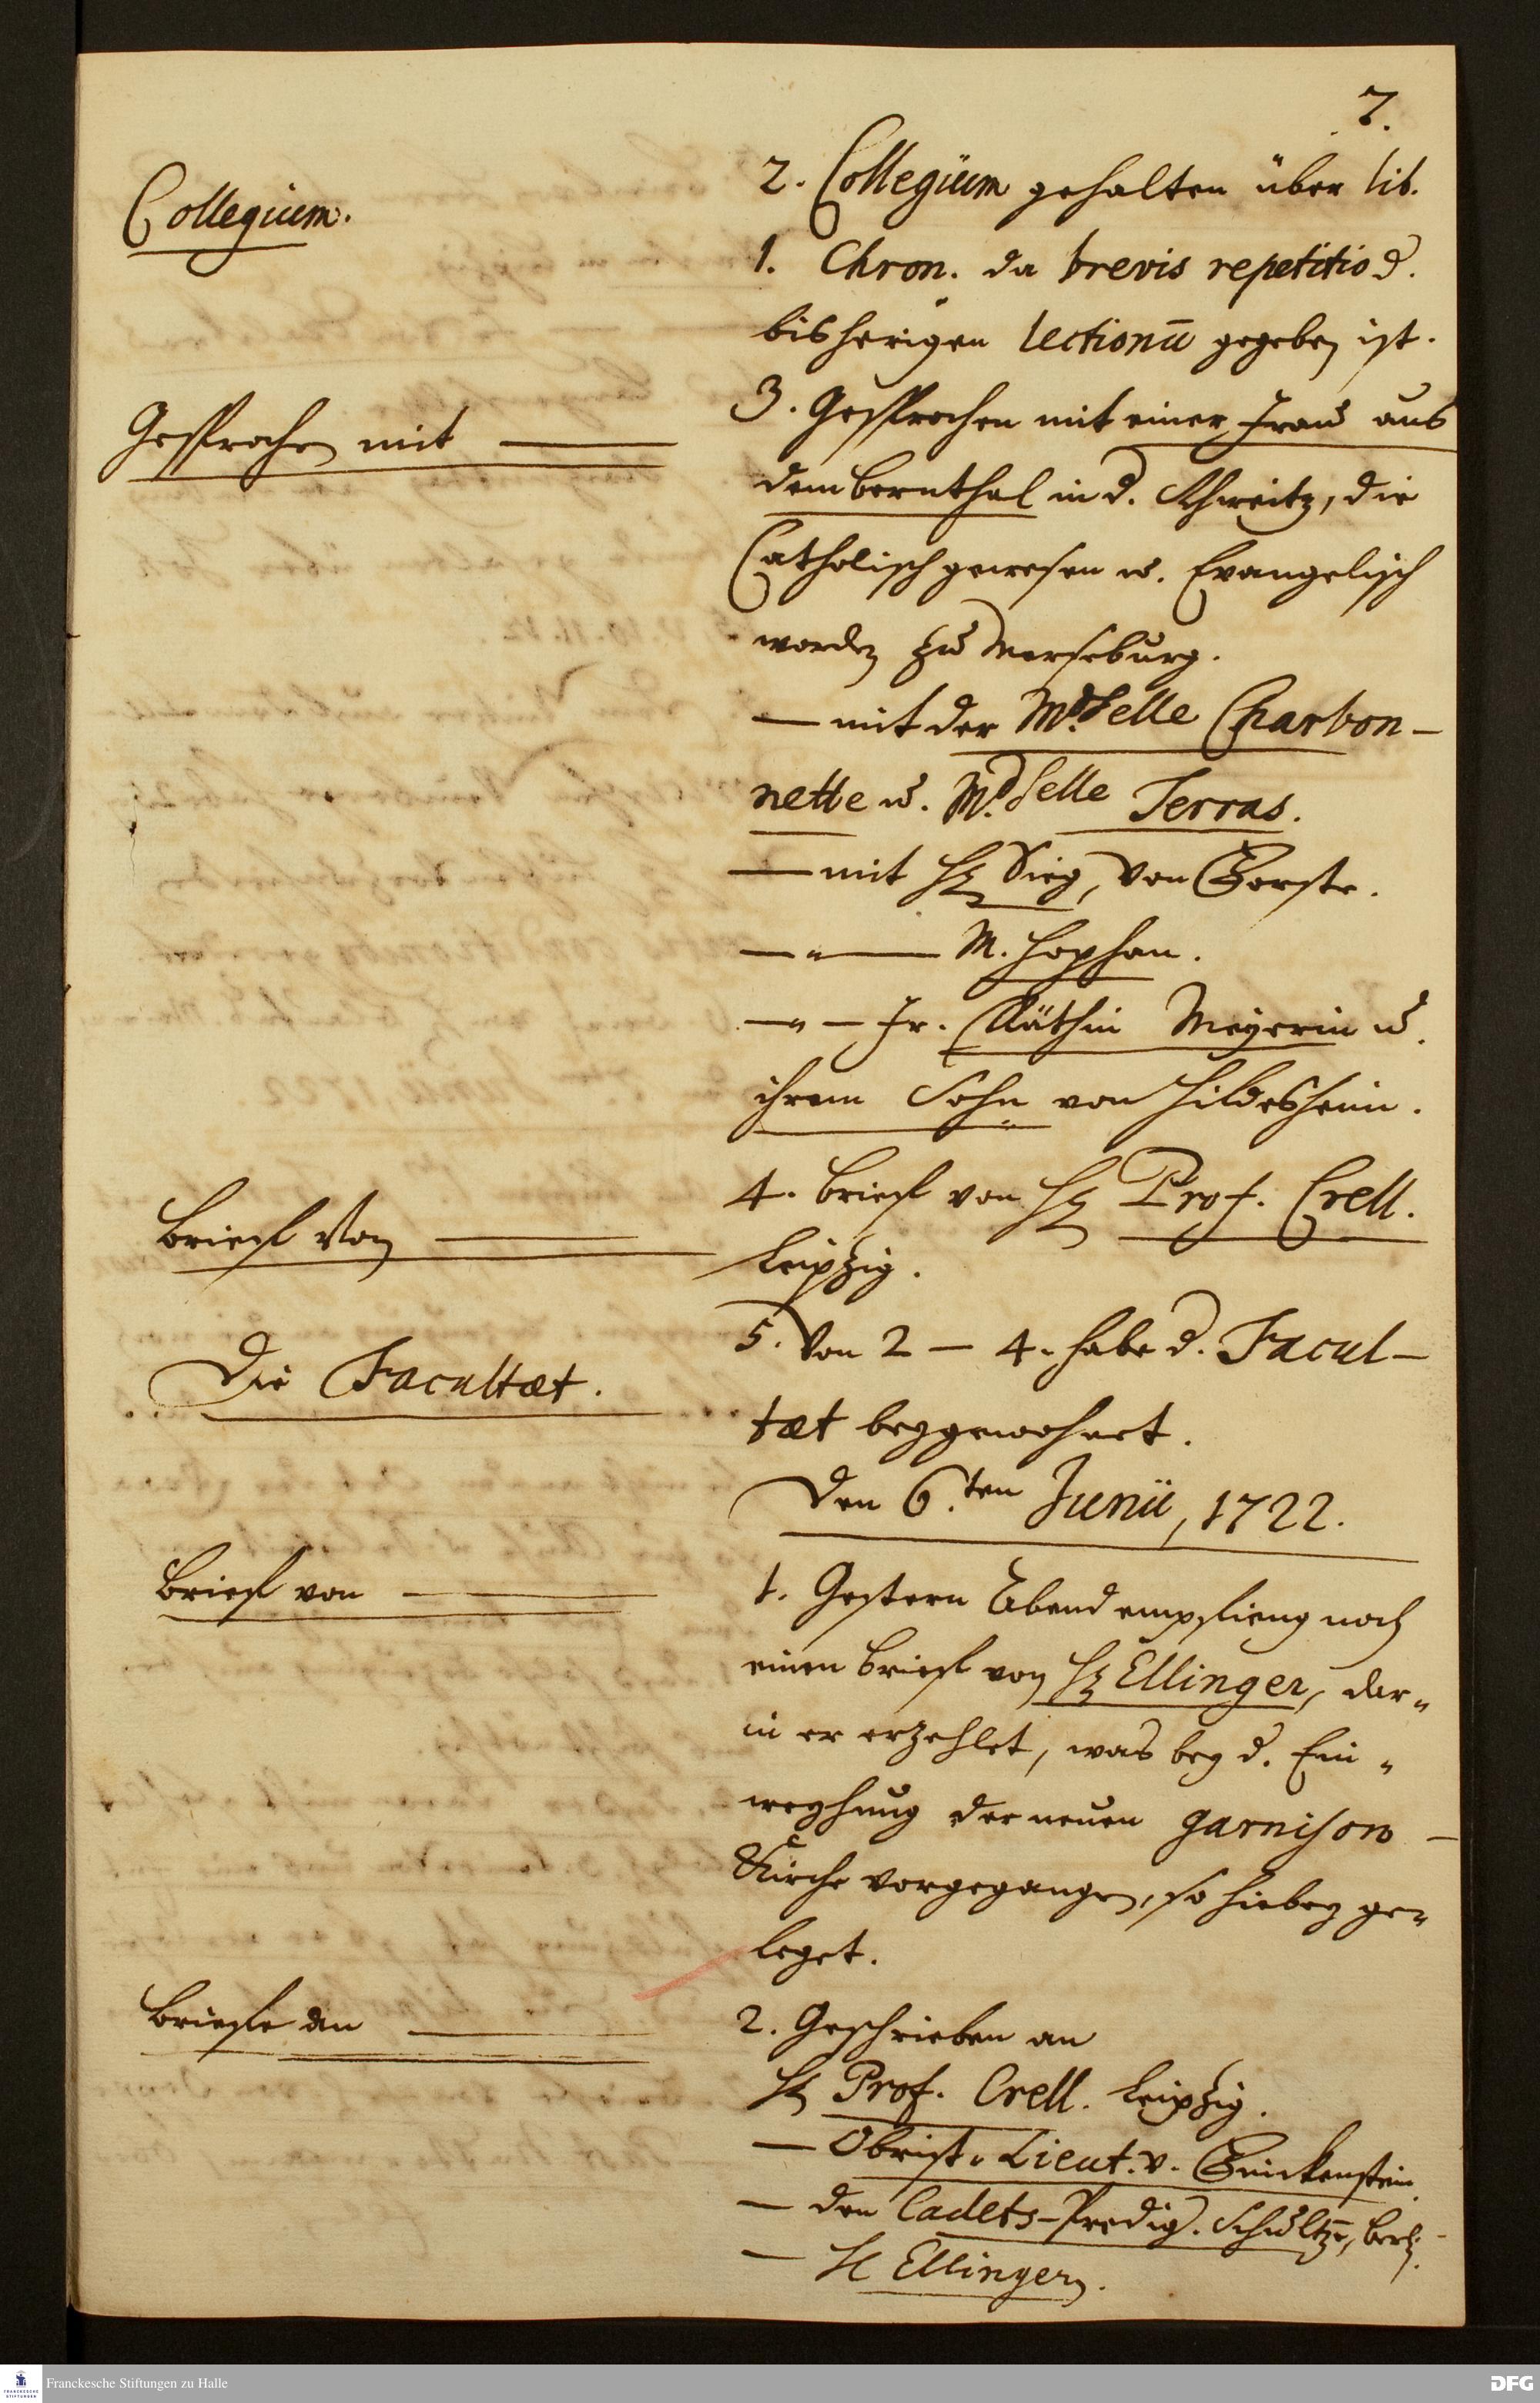 7.
Collegium.
2. Collegium gehalten über lib.
1. Chron. da brevis repetitio d.
bisherigen lectionū gegeben ist.
Gesprochen mit ———
3. Gesprochen mit einer Frau aus
dem Bernthal in d. Schweitz, die
Catholisch gewesen u. Evangelisch
worden zu Merseburg.
— mit der Mdselle Charbon-
nette u. Mdselle Terras.
— mit H Sieg, von
— " — M. Hophan.
— " — Fr. Räthin Meyerin u.
ihrem Sohn von Hildesheim.
Brief Von ———
4. Brief von H Prof. Crell.
Leipzig.
Die Facultæt.
5. Von 2 — 4. habe d. Facul-
tæt beygewohnet.
Den 6.ten Junii, 1722.
Brief von ———
1. Gestern Abend empfieng noch
einen Brief von H Ellinger, dar-
in er erzehlet, was bey d. Ein-
weyhung der neuen Garnison-
Kirche vorgegangen, so hiebey ge-
leget.
Briefe an ———
2. Geschrieben an
H Prof. Crell. Leipzig.
— Obrist-Lieut. v. Finckenstein
— den Cadets-Predig. Schultze, Berl.
— H Ellinger.
FRANCKESCHE STIFTUNGEN
Franckesche Stiftungen zu Halle
DFG